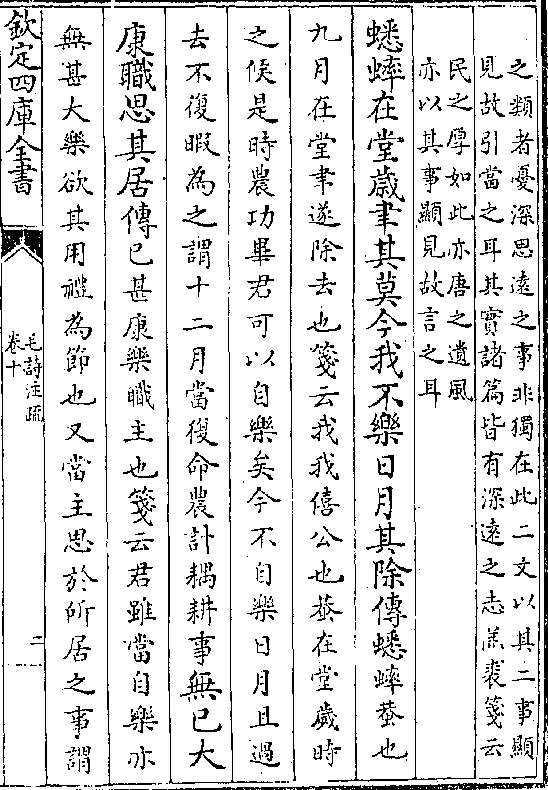 之類者憂深思遠之事非獨在此二文以其二事顯
見故引當之耳其實諸篇皆有深遠之志羔裘箋云
民之厚如此亦唐之遺風
亦以其事顯見故言之耳
蟋蟀在堂歳聿其莫今我不樂日月其除傳蟋蟀蛬也
九月在堂聿遂除去也箋云我我僖公也蛬在堂歲時
之候是時農功畢君可以自樂矣今不自樂日月且過
去不復暇為之謂十二月當復命農計耦耕事無已大
康職思其居傳已甚康樂職主也箋云君雖當自樂亦
無甚大樂欲其用禮為節也又當主思於所居之事謂
欽定四庫全書
毛詩注疏
卷十
二